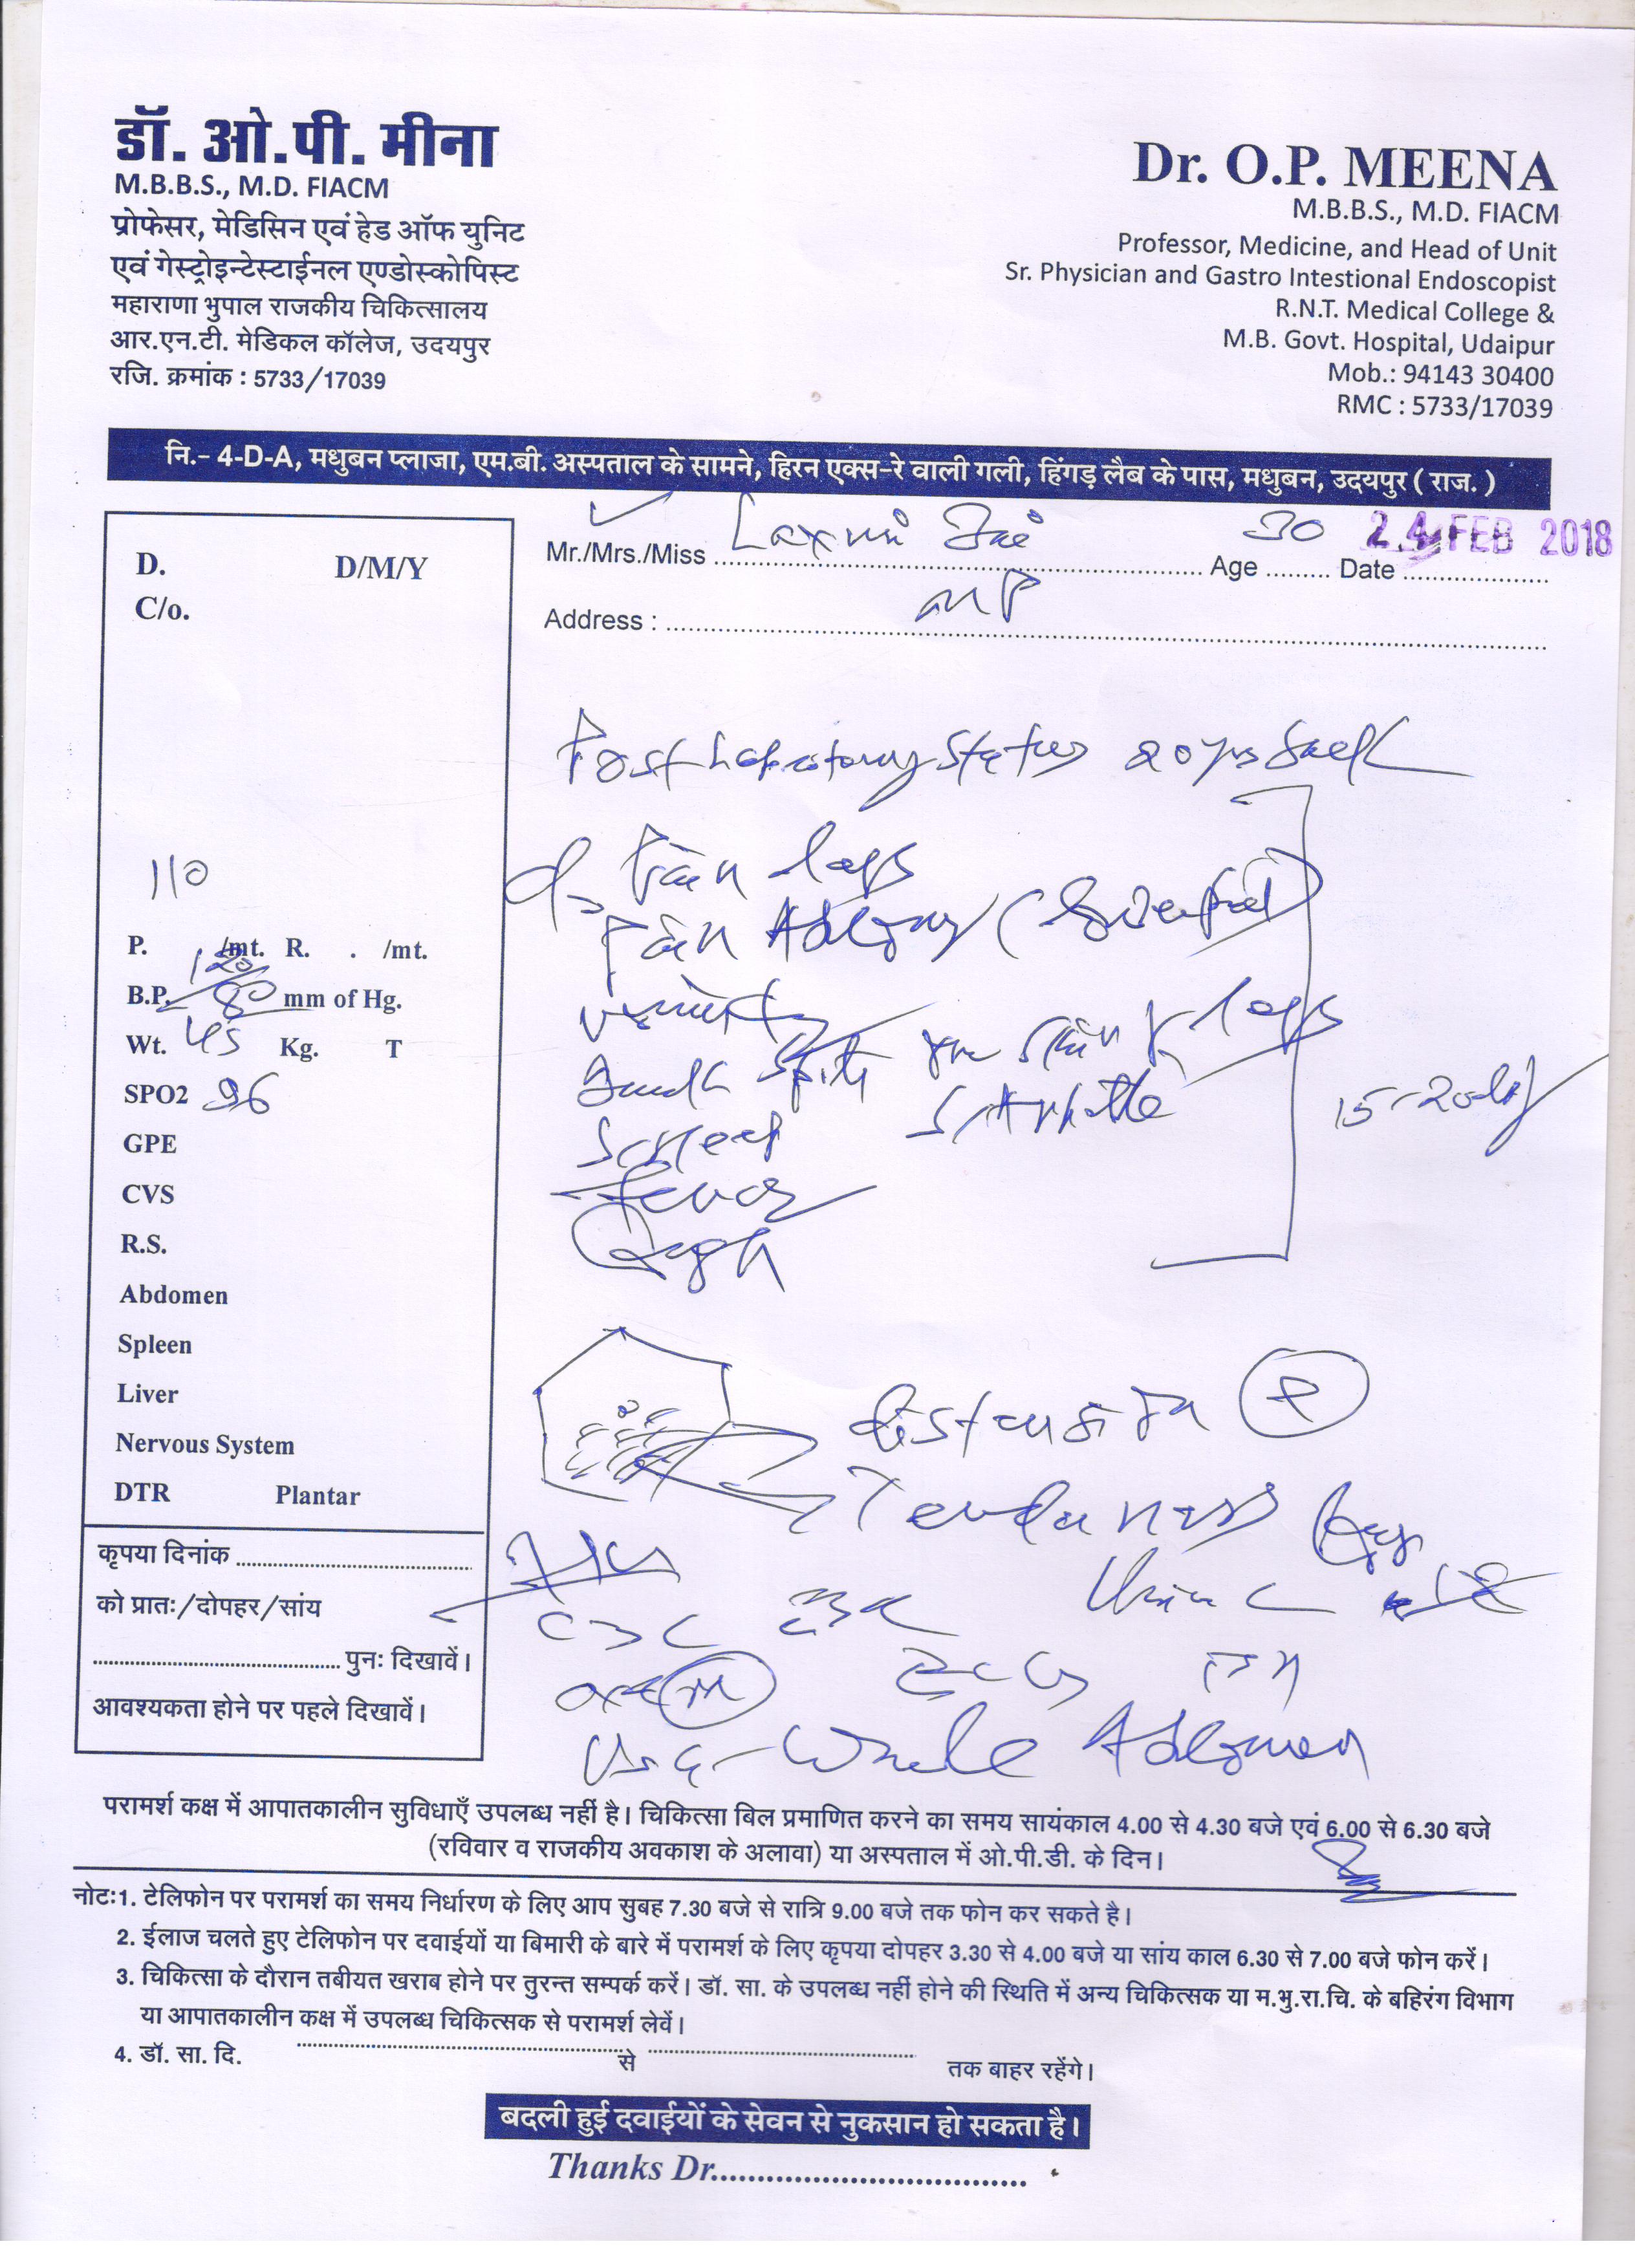 डॉ. ओ.पी. मीना
M.B.B.S., M.D. FIACM
प्रोफेसर, मेडिसिन एवं हेड ऑफ युनिट
एवं गेस्ट्रोइन्टेस्टाईनल एण्डोस्कोपिस्ट
महाराणा भुपाल राजकीय चिकित्सालय
आर.एन.टी. मेडिकल कॉलेज, उदयपुर
रजि. क्रमांक : 5733/17039
Dr. O.P. MEENA
M.B.B.S., M.D. FIACM
Professor, Medicine, and Head of Unit
Sr. Physician and Gastro Intestional Endoscopist
R.N.T. Medical College &
M.B. Govt. Hospital, Udaipur
Mob.: 94143 30400
RMC : 5733/17039
नि.- 4-D-A, मधुबन प्लाजा, एम.बी. अस्पताल के सामने, हिरन एक्स-रे वाली गली, हिंगड़ लैब के पास, मधुबन, उदयपुर ( राज. )
Mr./Mrs./Miss Laxmi Age 30 Date 24 FEB 2018
Address : MP
D. D/M/Y
C/o.
110
P. /mt. R. . /mt.
B.P. 120/80 mm of Hg.
Wt. 45 Kg. T
SPO2 96
GPE
CVS
R.S.
Abdomen
Spleen
Liver
Nervous System
DTR Plantar
कृपया दिनांक
को प्रातः/दोपहर/सांय
पुनः दिखावें।
आवश्यकता होने पर पहले दिखावें।
Post Laparotomy Status 20 yrs back
Pain legs
Pain Abdomen
Vomiting
Fever
Cough
Tenderness
CBC
ECG
USG - Whole Abdomen
परामर्श कक्ष में आपातकालीन सुविधाएँ उपलब्ध नहीं है। चिकित्सा बिल प्रमाणित करने का समय सायंकाल 4.00 से 4.30 बजे एवं 6.00 से 6.30 बजे
(रविवार व राजकीय अवकाश के अलावा) या अस्पताल में ओ.पी.डी. के दिन।
नोटः1. टेलिफोन पर परामर्श का समय निर्धारण के लिए आप सुबह 7.30 बजे से रात्रि 9.00 बजे तक फोन कर सकते है।
2. ईलाज चलते हुए टेलिफोन पर दवाईयों या बिमारी के बारे में परामर्श के लिए कृपया दोपहर 3.30 से 4.00 बजे या सांय काल 6.30 से 7.00 बजे फोन करें।
3. चिकित्सा के दौरान तबीयत खराब होने पर तुरन्त सम्पर्क करें। डॉ. सा. के उपलब्ध नहीं होने की स्थिति में अन्य चिकित्सक या म.भु.रा.चि. के बहिरंग विभाग
या आपातकालीन कक्ष में उपलब्ध चिकित्सक से परामर्श लेवें।
4. डॉ. सा. दि. से तक बाहर रहेंगे।
बदली हुई दवाईयों के सेवन से नुकसान हो सकता है।
Thanks Dr.